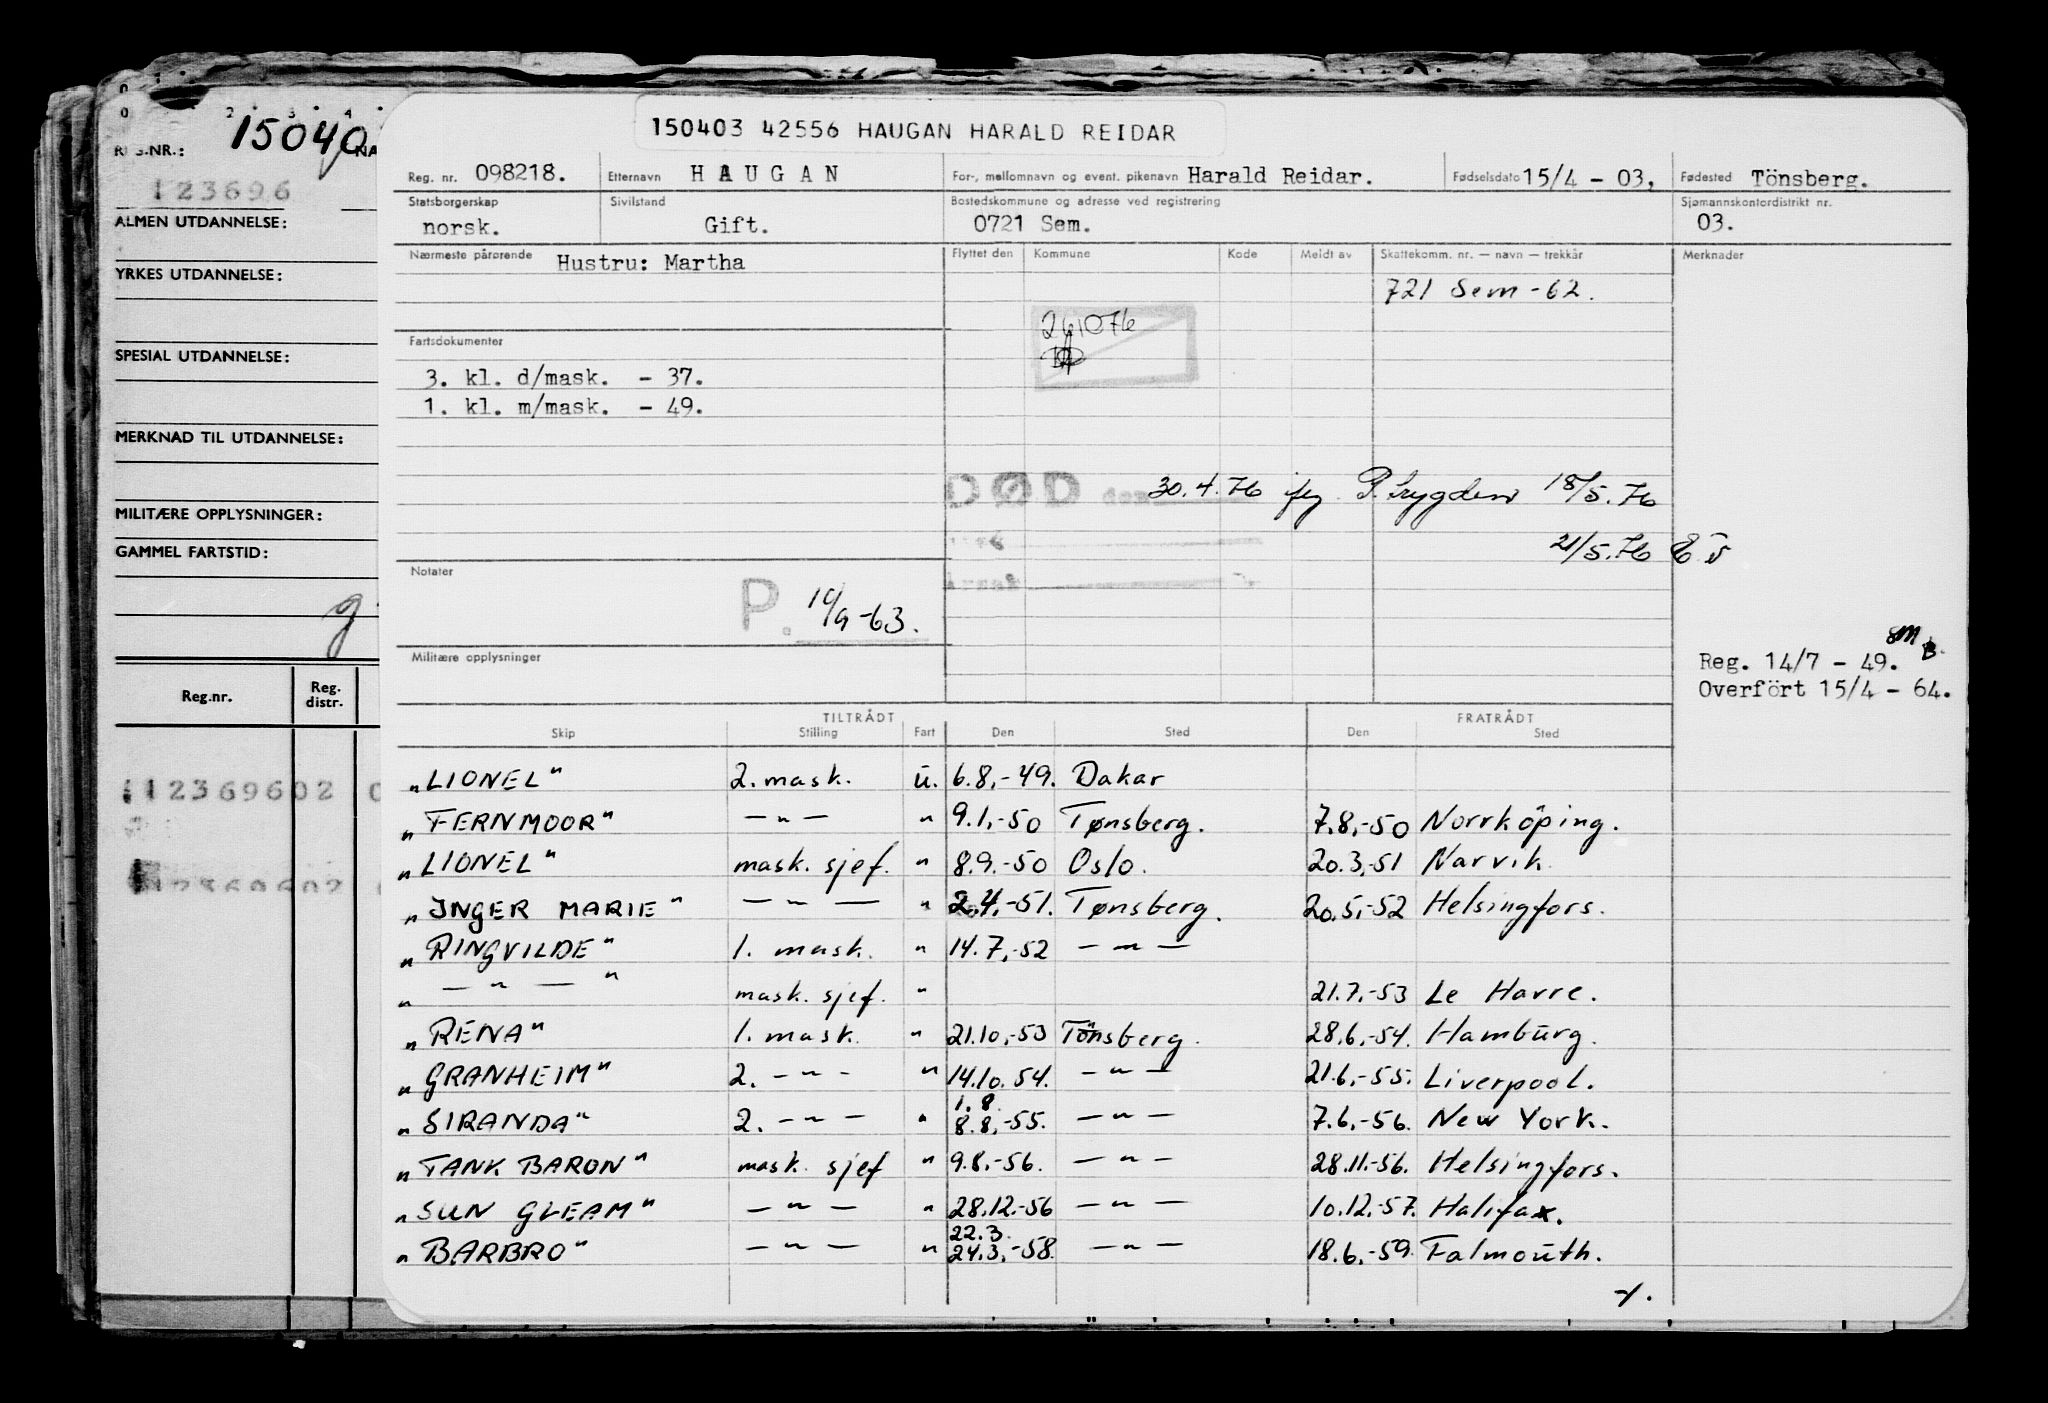 150403 42556 HAUGAN HARALD REIDAR
REG.NR.: 15040 NA
123696
ALMEN UTDANNELSE:
YRKES UTDANNELSE:
SPESIAL UTDANNELSE:
MERKNAD TIL UTDANNELSE:
MILITÆRE OPPLYSNINGER:
GAMMEL FARTSTID:
g
Reg.nr. Reg. distr.
112369602 0
12369602
Reg. nr. 098218. Etternavn HAUGAN For-, mellomnavn og event. pikenavn Harald Reidar. Fødselsdato 15/4 - 03, Fødested Tönsberg.
Statsborgerskap Sivilstand Bostedskommune og adresse ved registrering Sjømannskontordistrikt nr.
norsk. Gift. 0721 Sem. 03.
Nærmeste pårørende Hustru: Martha Flyttet den Kommune Kode Meldt av Skattekomm. nr. — navn — trekkår Merknader
721 Sem -62.
261076
Fartsdokumenter
3. kl. d/mask. - 37.
1. kl. m/mask. - 49.
DØD den 30.4.76 P. trygden 18/5.76
21/5.76
Notater
P. 10/9-63.
Militære opplysninger
Reg. 14/7 - 49.
Overfört 15/4 - 64.
TILTRÅDT FRATRÅDT
Skip Stilling Fart Den Sted Den Sted
„LIONEL" 2. mask. u. 6.8,-49. Dakar
„FERNMOOR" — " — " 9.1,-50 Tønsberg. 7.8,-50 Norrköping.
„LIONEL" mask. sjef. " 8.9.-50 Oslo. 20.3,-51 Narvik
„INGER MARIE" — " — " 2.4,-51. Tønsberg. 20.5,-52 Helsingfors.
„RINGVILDE" 1. mask. " 14.7,-52 — " —
„ — " — " mask. sjef. " 21.7,-53 Le Havre.
„RENA" 1. mask. " 21.10,-53 Tönsberg. 28.6,-54. Hamburg.
„GRANHEIM" 2. — " — " 14.10.54. — " — 21.6,-55. Liverpool.
1.8.
„SIRANDA" 2. — " — " 8.8,-55. — " — 7.6,-56. New York.
„TANK BARON" mask. sjef " 9.8,-56. — " — 28.11.-56. Helsingfors.
„SUN GLEAM" — " — " 28.12.-56 — " — 10.12.-57. Halifax.
22.3.
„BARBRO" — " — " 24.3,-58. — " — 18.6,-59. Falmouth.
-/.